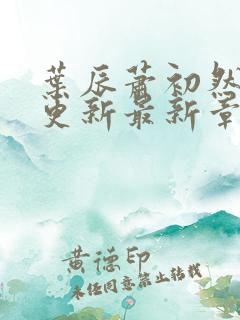 葉辰蕭初然
更新最新章
黄德印
未经同意禁止转载